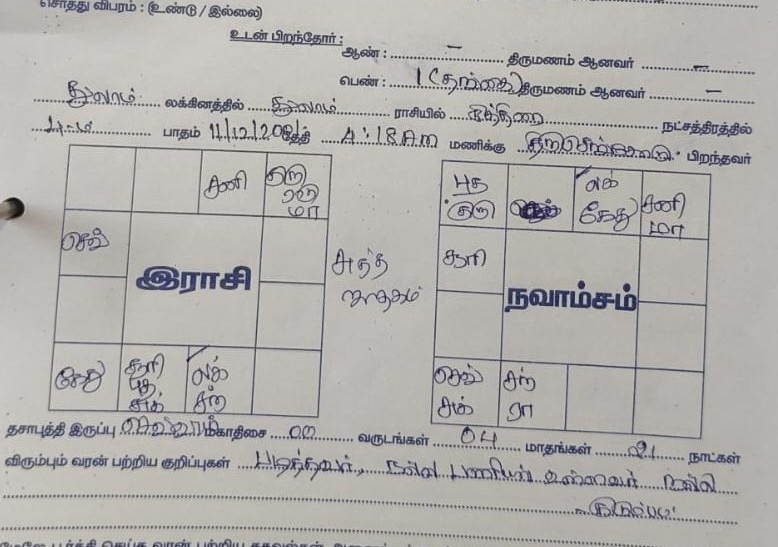 சொத்து விபரம் : (உண்டு / இல்லை)
உடன் பிறந்தோர் :
ஆண் : – திருமணம் ஆனவர் –
பெண் : 1 (தங்கை) திருமணம் ஆனவர் –
துலாம் லக்கினத்தில் துலாம் ராசியில் சித்திரை நட்சத்திரத்தில்
4-ம் பாதம் 11/12/2001 தேதி 4:18 AM மணிக்கு திருச்செங்கோடு பிறந்தவர்
சனி குரு ரா மா
செவ்
இராசி
கேது சூரி புத சுக் லக் சந்
சுத்த ஜாதகம்
புத குரு லக் கேது சனி மா
சூரி
நவாம்சம்
செவ் சுக் சந் ரா
தசாபுத்தி இருப்பு செவ்வாய் மகாதிசை 00 வருடங்கள் 04 மாதங்கள் 21 நாட்கள்
விரும்பும் வரன் பற்றிய குறிப்புகள் படித்தவர், நல்ல பணியில் உள்ளவர் நல்ல
குடும்பம்